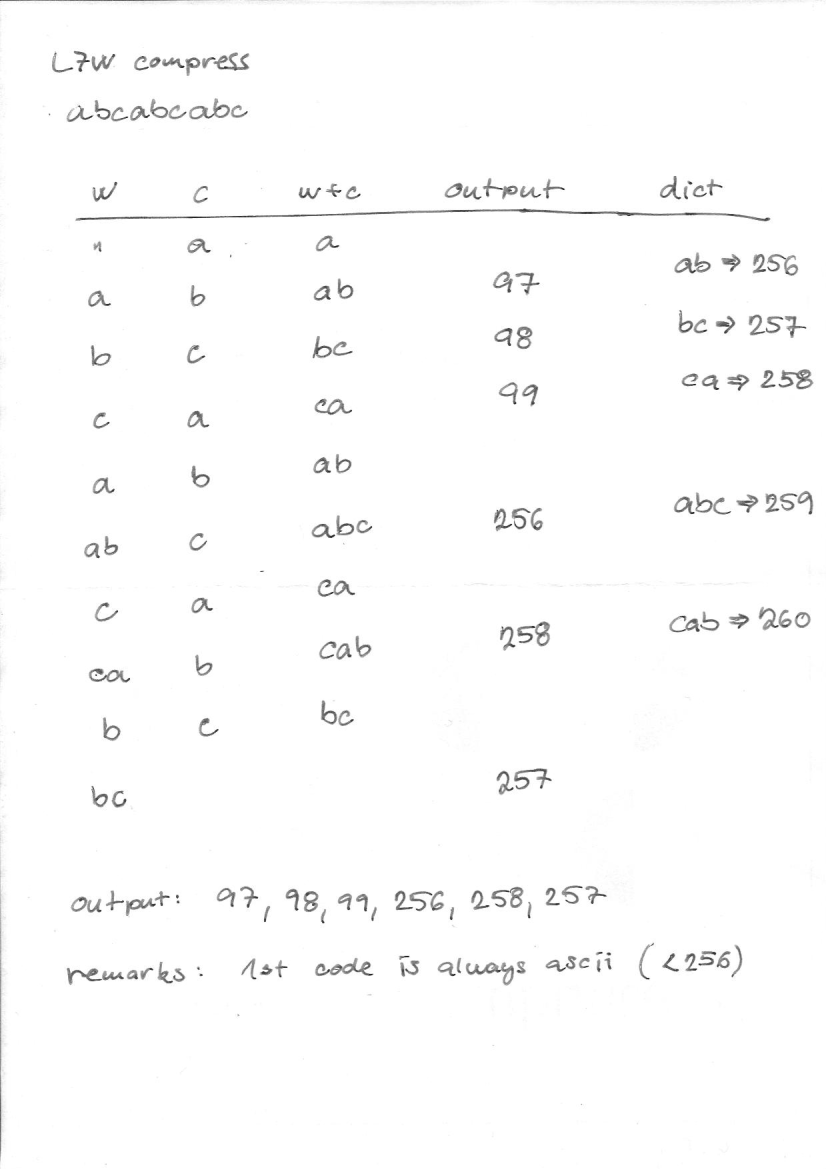 LZW compress
abcabcabc
w c w+c output dict
" a a
ab => 256
a b ab 97
bc => 257
b c bc 98
ca => 258
c a ca 99
a b ab
abc => 259
ab c abc 256
c a ca
cab => 260
ca b cab 258
b c bc
bc 257
output: 97, 98, 99, 256, 258, 257
remarks: 1st code is always ascii (<256)